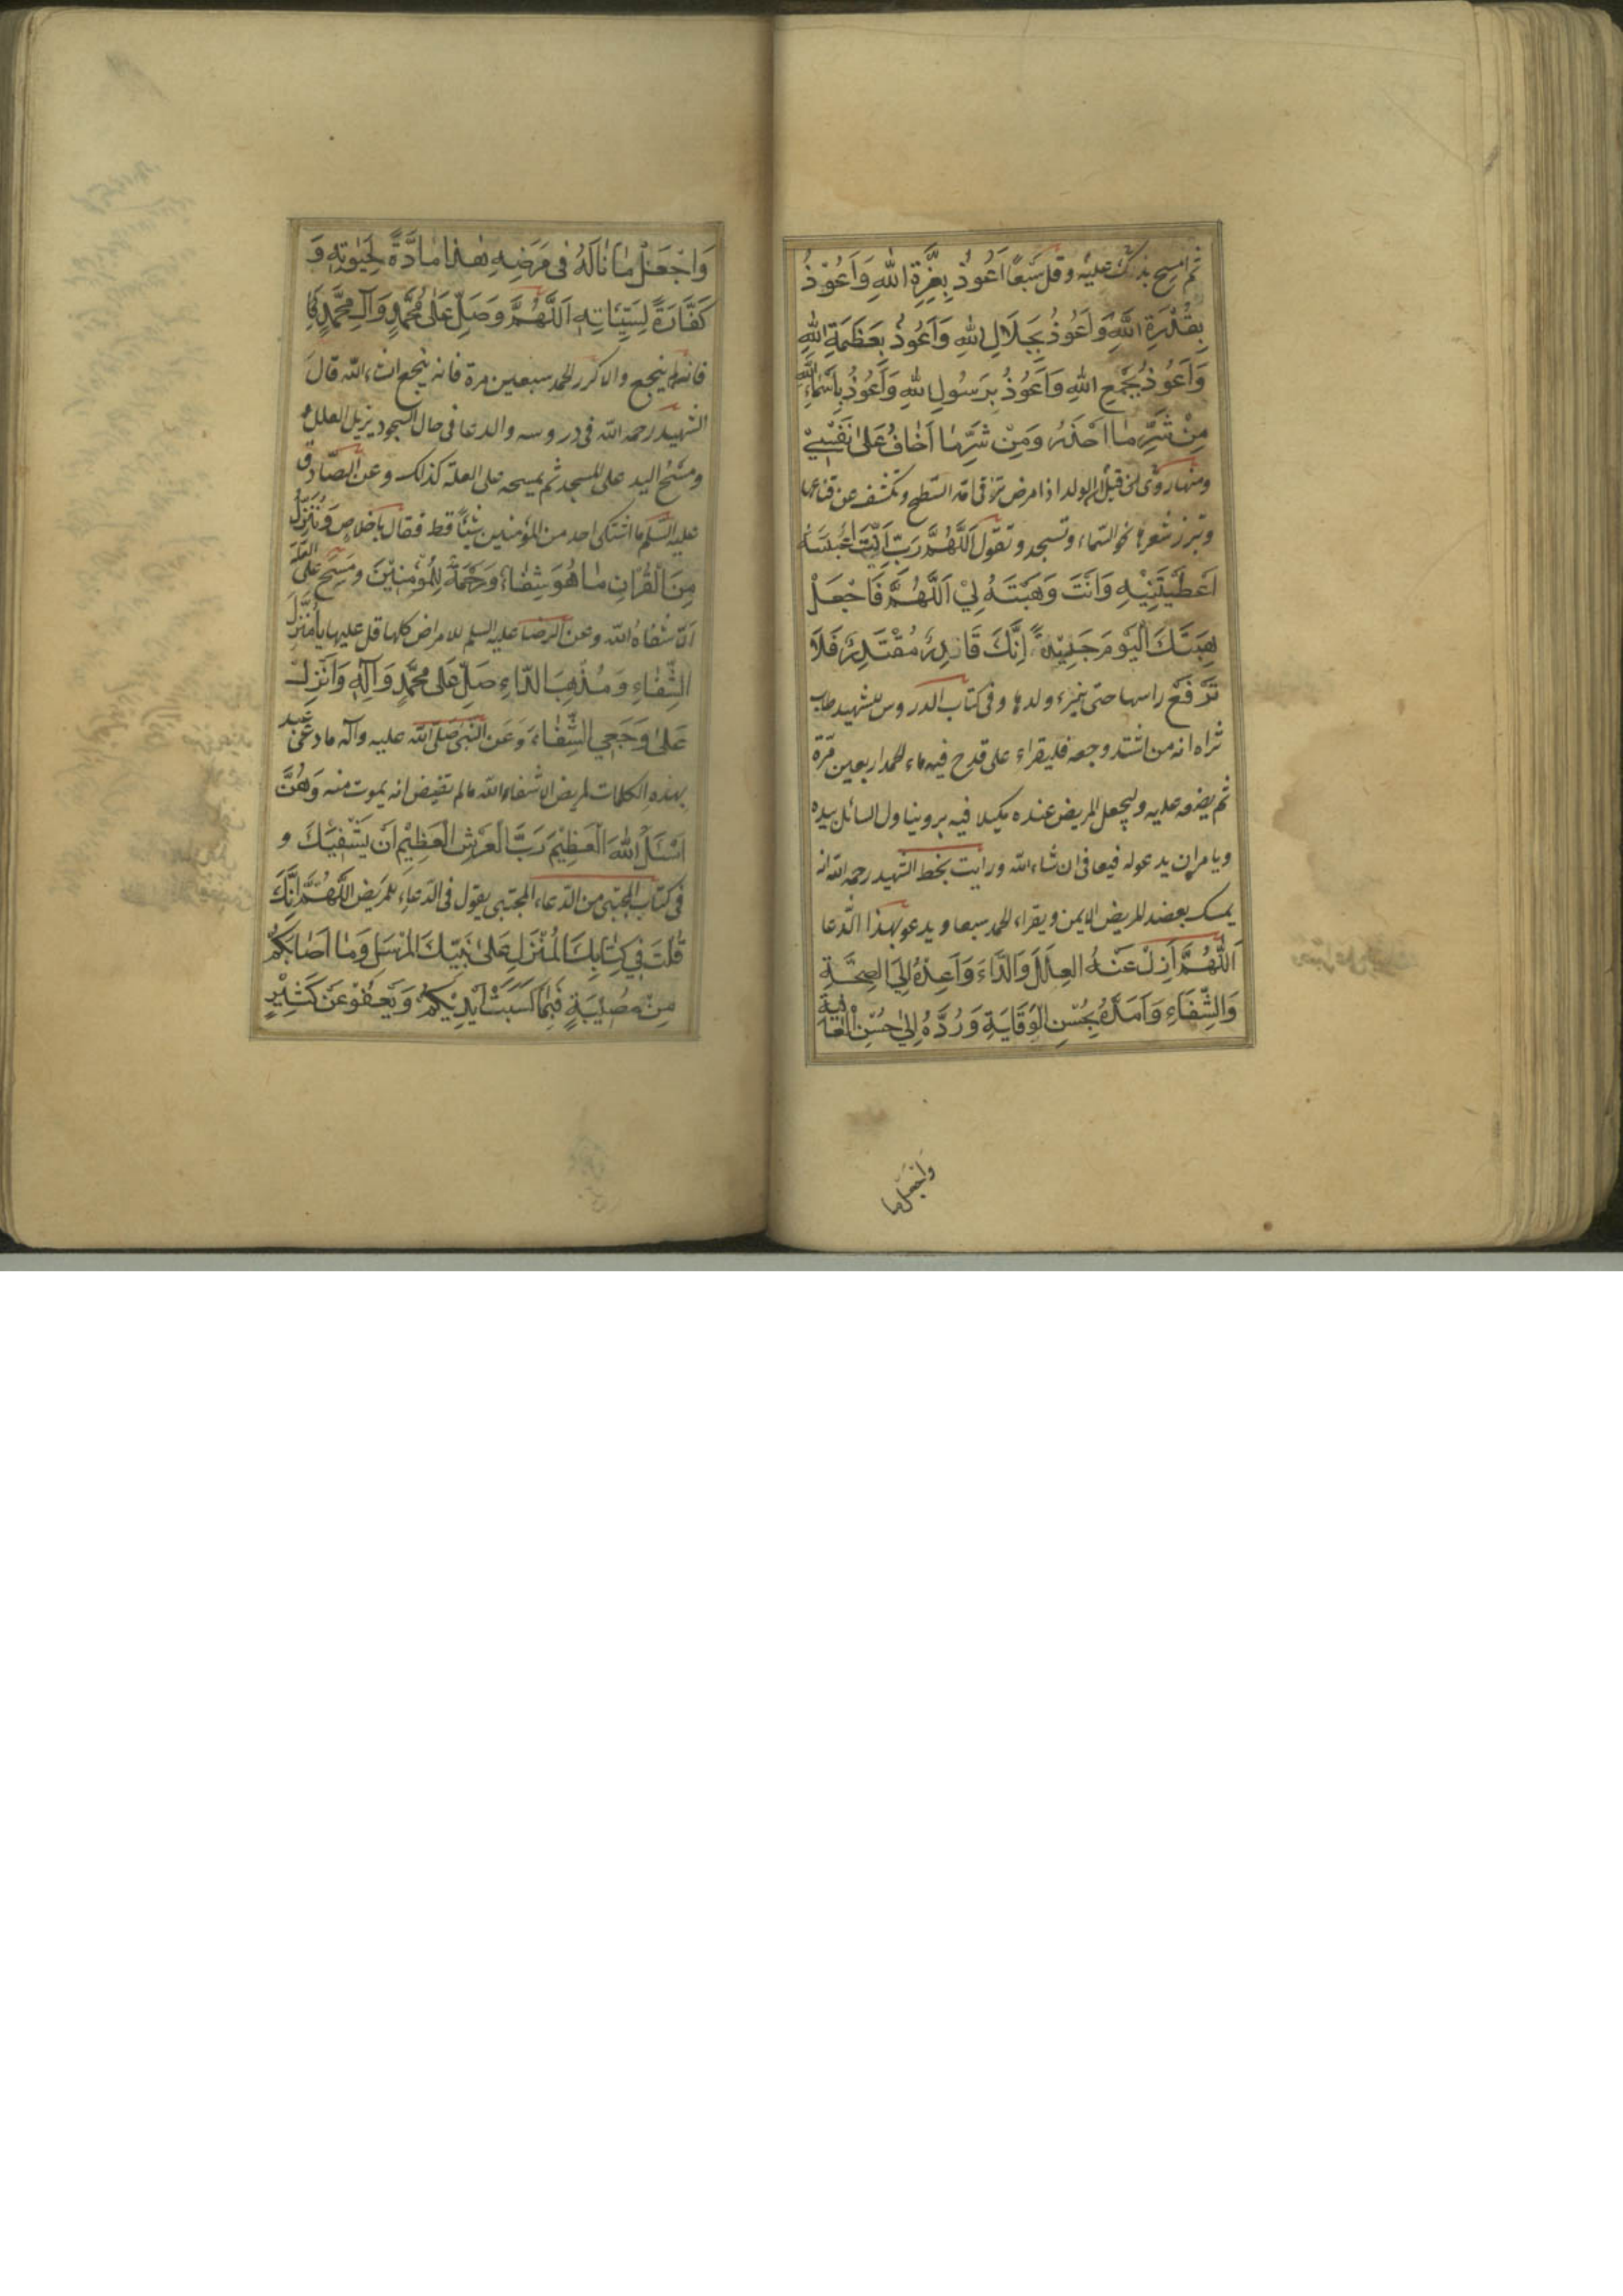 ثم امسح يدك عليه وقل سبعا اَعُوذُ بِعِزَّةِ اللهِ وَاَعُوذُ
بِقُدْرَةِ اللهِ وَاَعُوذُ بِجَلَالِ اللهِ وَاَعُوذُ بِعَظَمَةِ اللهِ
وَاَعُوذُ بِجَمْعِ اللهِ وَاَعُوذُ بِرَسُولِ اللهِ وَاَعُوذُ بِاَسْمَاءِ اللهِ
مِنْ شَرِّ مَا اَحْذَرُ وَمِنْ شَرِّ مَا اَخَافُ عَلىٰ نَفْسِيْ
ومنها روى من قبل ام الولد اذا مرض ترقى امه السطح وتكشف عن قناعها
وتبرز شعرها نحو السماء وتسجد وتقول اَللّٰهُمَّ رَبِّ اَنْتَ
اَعْطَيْتَنِيْهِ وَاَنْتَ وَهَبْتَهُ لِيْ اَللّٰهُمَّ فَاجْعَلْ
هِبَتَكَ الْيَوْمَ جَدِيْدَةً اِنَّكَ قَادِرٌ مُقْتَدِرٌ فَلَا
تَرْفَع راسها حتى يبرء ولدها وفى كتاب الدروس للشهيد طاب
ثراه انه من اشتد وجعه فليقراء على قدح فيه ماء الحمد اربعين مرة
ثم يضعه عليه وليجعل المريض عنده مكيلا فيه بر ويناول السائل بيده
ويامر ان يدعو له فيعافى ان شاء الله ورايت بخط الشهيد رحمه الله انه
يمسك بعضد المريض الايمن ويقراء الحمد سبعا ويدعو بهذا الدعا
اَللّٰهُمَّ اَزِلْ عَنْهُ الْعِلَلَ وَالدَّاءَ وَاَعِدْهُ اِلَى الصِّحَّةِ
وَالشِّفَاءِ وَاَمِدَّهُ بِحُسْنِ الْوِقَايَةِ وَرُدَّهُ اِلىٰ حُسْنِ الْعَافِيَةِ
وَاجْعَلْ ما
وَاجْعَلْ مَا نَالَهُ فِى مَرَضِهِ هٰذَا مَادَّةً لِحَيٰوتِهِ وَ
كَفَّارَةً لِسَيِّئَاتِهِ اَللّٰهُمَّ وَصَلِّ عَلىٰ مُحَمَّدٍ وَآلِ مُحَمَّدٍ
فان لم ينجع والا كرر الحمد سبعين مرة فانه ينجع انشاء الله قال
الشهيد رحمه الله فى دروسه والدعا فى حال السجود يزيل العلل
ومسح اليد على المسجد ثم يمسحه على العلة كذلك وعن الصادق
عليه السلم ما اشتكى احد من المؤمنين شيئا قط فقال باخلاص وَنُنَزِّلُ
مِنَ الْقُرْاٰنِ مَا هُوَ شِفَاءٌ وَرَحْمَةٌ لِلْمُؤْمِنِيْنَ ومسح على العلة
الا شفاه الله وعن الرضا عليه السلم للامراض كلها قل عليها يَا مُنَزِّلَ
الشِّفَاءِ وَمُذْهِبَ الدَّاءِ صَلِّ عَلىٰ مُحَمَّدٍ وَآلِهِ وَاَنْزِلْ
عَلىٰ وَجَعِي الشِّفَاءَ وَعَن النبى صلى الله عليه وآله ما دعى عبد
بهذه الكلمات لمريض الا شفاه الله ما لم يقيض انه يموت منه وَهُنَّ
اَسْئَلُ اللهَ الْعَظِيْمَ رَبَّ الْعَرْشِ الْعَظِيْمِ اَنْ يَشْفِيَكَ و
فى كتاب المجتنى من الدعاء المجتبى يقول فى الدعاء للمريض اَللّٰهُمَّ اِنَّكَ
قُلْتَ فِي كِتَابِكَ الْمُنْزَلِ عَلىٰ نَبِيِّكَ الْمُرْسَلِ وَمَا اَصَابَكُمْ
مِنْ مُصِيْبَةٍ فَبِمَا كَسَبَتْ اَيْدِيْكُمْ وَيَعْفُوْ عَنْ كَثِيْرٍ